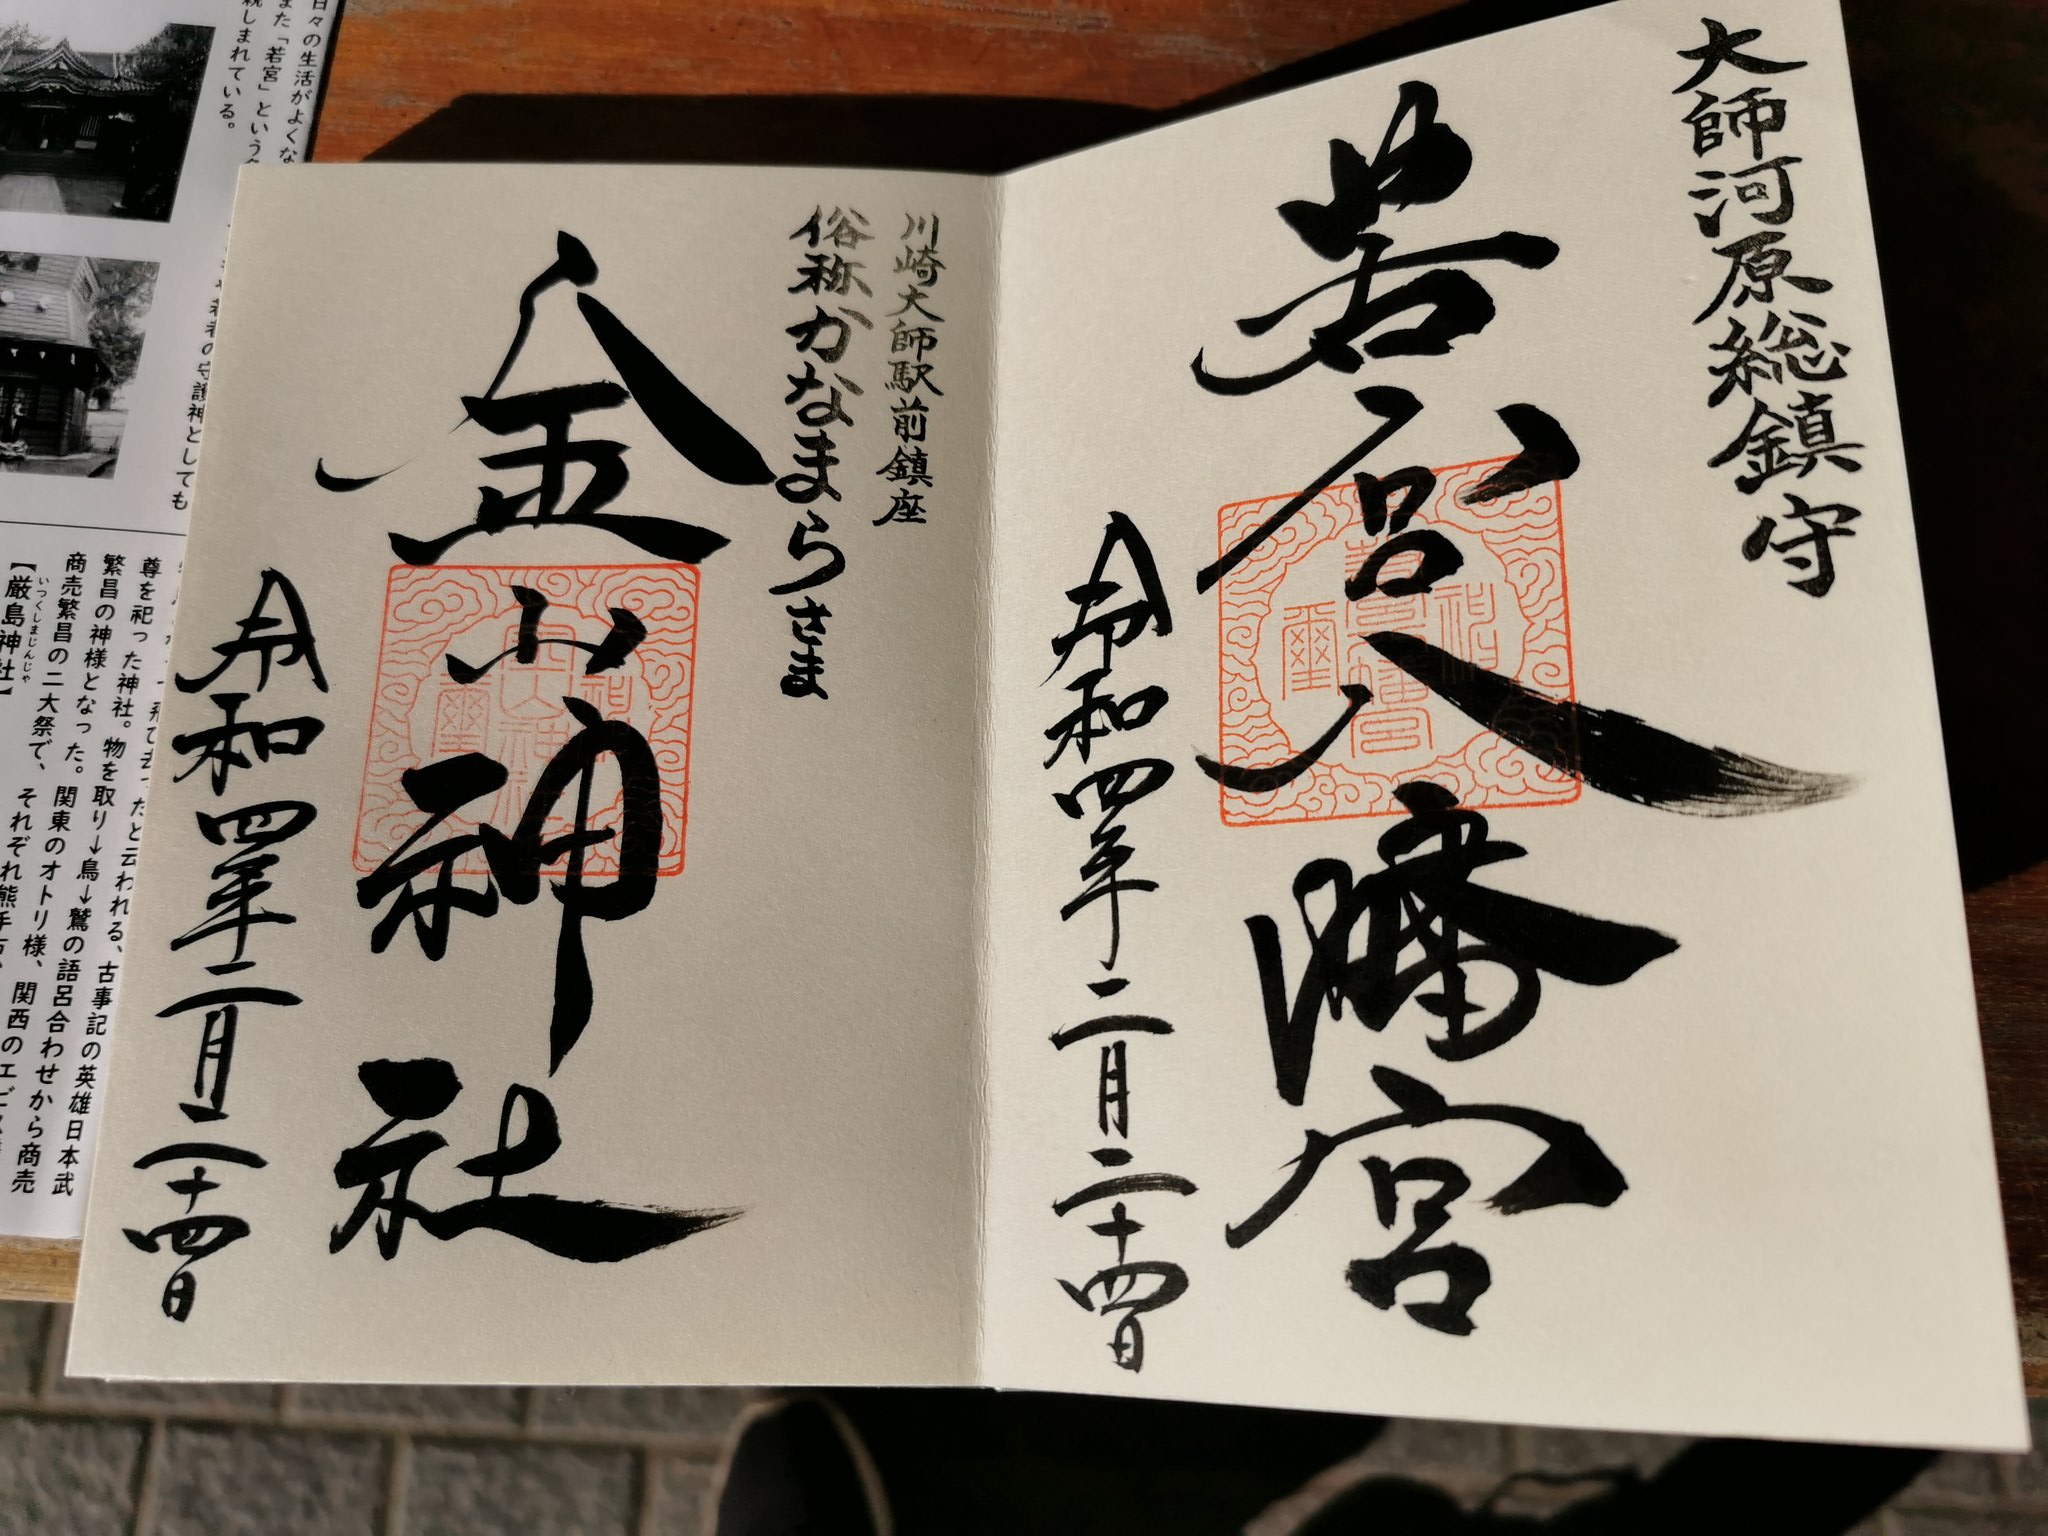 大師河原総鎮守
若宮八幡宮
令和四年二月二十四日
川崎大師駅前鎮座
俗称かなまらさま
金山神社
令和四年二月二十四日
日々の生活がよくな
また「若宮」という
親しまれている。
若者の守護神としても
尊を祀った神社。物を取り→鳥→鷲の語呂合わせから商売
繁昌の神様となった。関東のオトリ様、関西のエビ
商売繁昌の二大祭で、それぞれ熊手
【厳島神社】
いつくしまじんじゃ
飛び去ったと云われる、古事記の英雄日本武